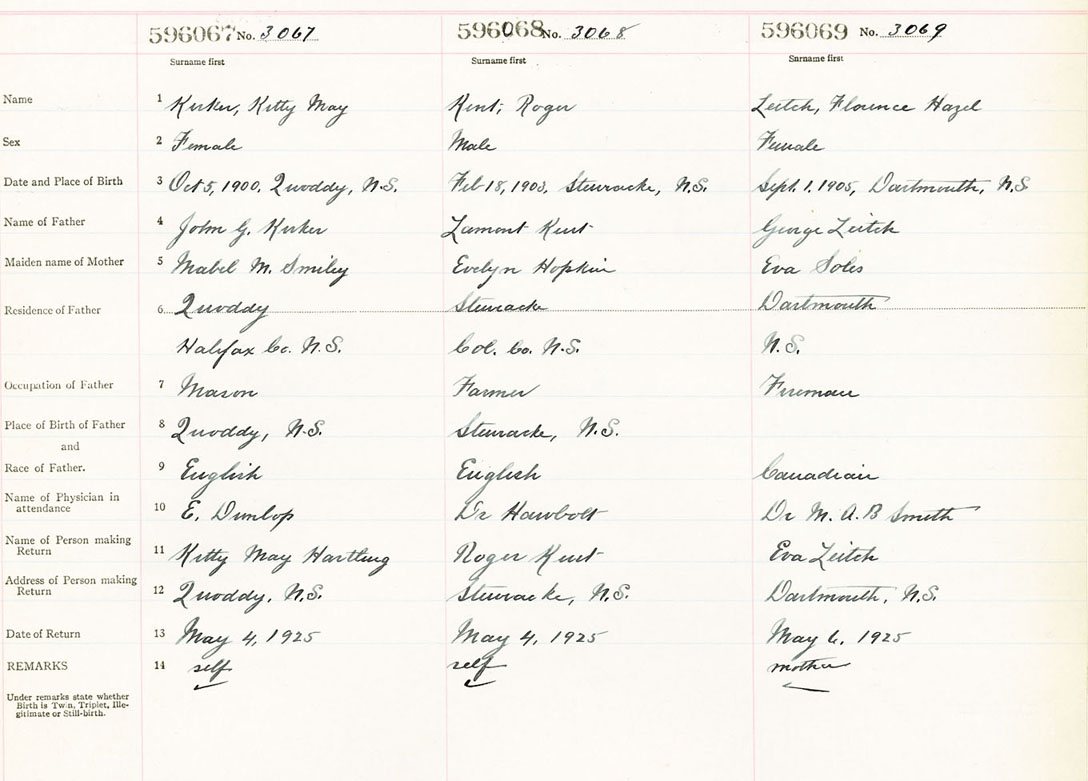 596067 No. 3067 596068 No. 3068 596069 No. 3069
Surname first Surname first Surname first
Name 1 Kirker, Kitty May Kent, Roger Leitch, Florence Hazel
Sex 2 Female Male Female
Date and Place of Birth 3 Oct 5, 1900, Quoddy, N.S. Feb 18, 1903, Stewiacke, N.S. Sept. 1, 1905, Dartmouth, N.S
Name of Father 4 John G. Kirker Lamont Kent George Leitch
Maiden name of Mother 5 Mabel M. Smiley Evelyn Hopkin Eva Soles
Residence of Father 6 Quoddy Stewiacke Dartmouth
Halifax Co. N.S. Col. Co. N.S. N.S.
Occupation of Father 7 Mason Farmer Fireman
Place of Birth of Father 8 Quoddy, N.S. Stewiacke, N.S.
and
Race of Father. 9 English English Canadian
Name of Physician in
attendance 10 E. Dunlop Dr Hawbolt Dr M. A. B Smith
Name of Person making
Return 11 Kitty May Hartling Roger Kent Eva Leitch
Address of Person making
Return 12 Quoddy, N.S. Stewiacke, N.S. Dartmouth, N.S.
Date of Return 13 May 4, 1925 May 4, 1925 May 6, 1925
REMARKS 14 self self mother
Under remarks state whether
Birth is Twin, Triplet, Ille-
gitimate or Still-birth.